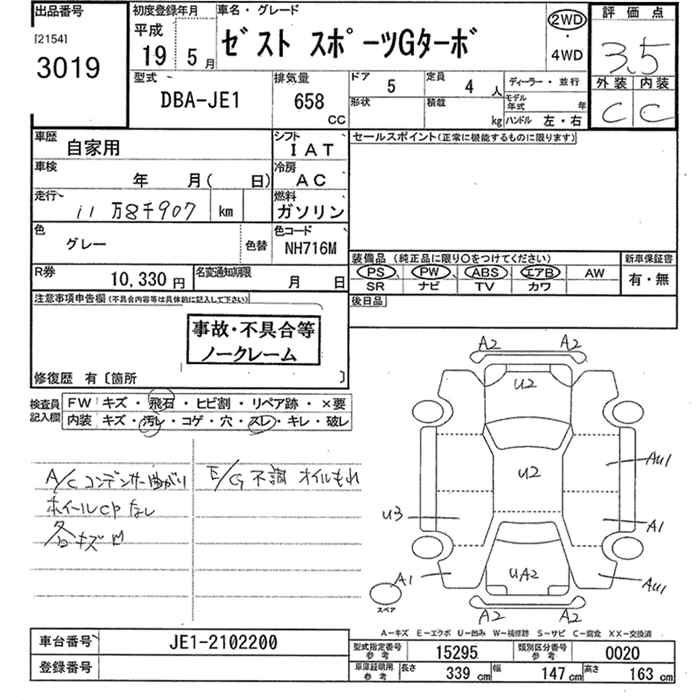 出品番号
[2154]
3019
初度登録年月
平成
19年 5月
車名・グレード
ｾﾞｽﾄ ｽﾎﾟｰﾂGﾀｰﾎﾞ
2WD
・
4WD
評価点
3.5
外装 内装
C C
型式
DBA-JE1
排気量
658
CC
ドア
5
定員
4人
形状
積載
kg
ディーラー・並行
モデル年式 年
ハンドル 左・右
車歴
自家用
シフト
IAT
車検
年 月( 日)
冷房
AC
走行
11万8千907 km
燃料
ガソリン
色
グレー
色替
色コード
NH716M
R券
10,330円
名変通知期限
月 日
セールスポイント(正常に機能するものに限ります)
装備品 (純正品に限り○をつけてください)
PS PW ABS エアB AW
SR ナビ TV カワ
新車保証書
有・無
後日品
注意事項申告欄(不具合内容等は具体的に記入して下さい)
事故・不具合等
ノークレーム
修復歴 有〔箇所 〕
検査員
記入欄
FW キズ・飛石・ヒビ割・リペア跡・×要
内装 キズ・汚レ・コゲ・穴・スレ・キレ・破レ
A/C コンデンサー曲がり
E/G 不調 オイルもれ
ホイールCPなし
各キズ凹
A2 A2
U2
U2
AU1
U3
A1
A1
UA2
AU1
スペア
A2 A2
A－キズ E－エクボ U－凹み W－補修跡 S－サビ C－腐食 XX－交換済
車台番号
JE1-2102200
登録番号
型式指定番号
参考
15295
類別区分番号
参考
0020
車庫証明用
参考
長さ
339 cm
幅
147 cm
高さ
163 cm